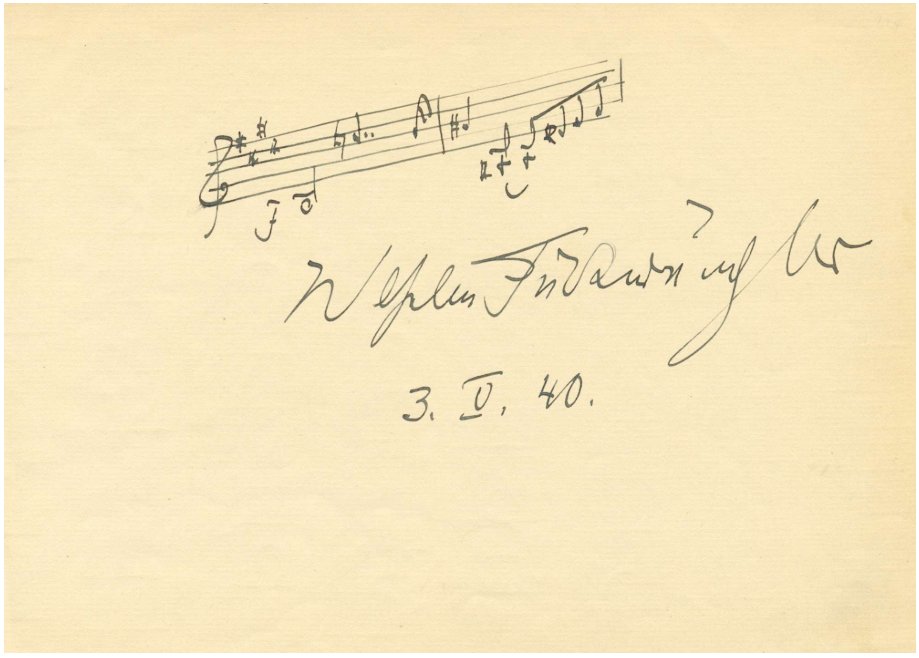 Wilhelm Furtwängler
3. V. 40.